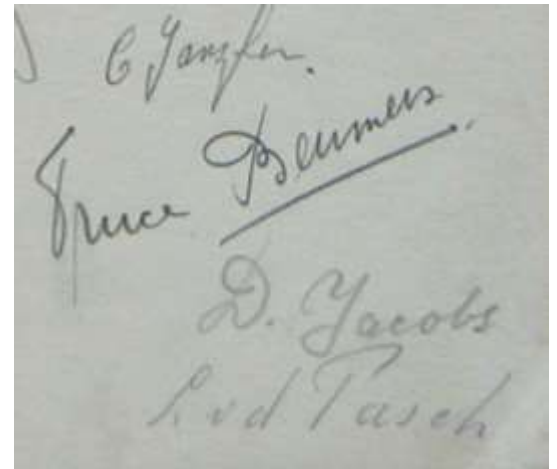 C Janzfen.
Truce Beumers.
D. Jacobs
L. v d. Pasch